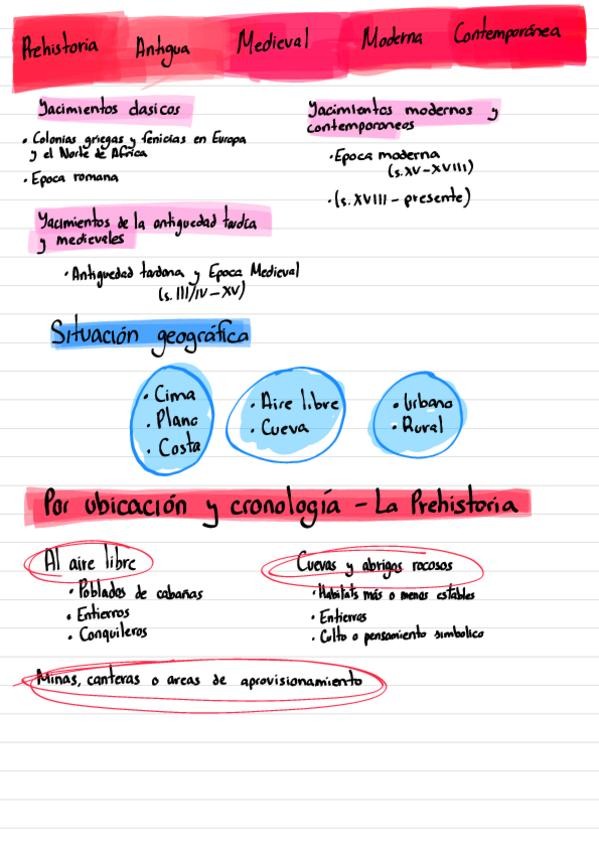 Prehistoria Antigua Medieval Moderna Contemporánea
Yacimientos clasicos
• Colonias griegas y fenicias en Europa
y el Norte de Africa
• Epoca romana
Yacimientos de la antiguedad tardía
y medievales
• Antiguedad tardana y Epoca Medieval
(s. III/IV – XV)
Yacimientos modernos y
contemporaneos
• Epoca moderna
(s. XV – XVIII)
• (s. XVIII – presente)
Situación geográfica
• Cima
• Plano
• Costa
• Aire libre
• Cueva
• Urbano
• Rural
Por ubicación y cronología – La Prehistoria
Al aire libre
• Poblados de cabañas
• Entierros
• Conquileros
Cuevas y abrigos rocosos
• Habitats más o menos estables
• Entierros
• Culto o pensamiento simbolico
Minas, canteras o areas de aprovisionamiento